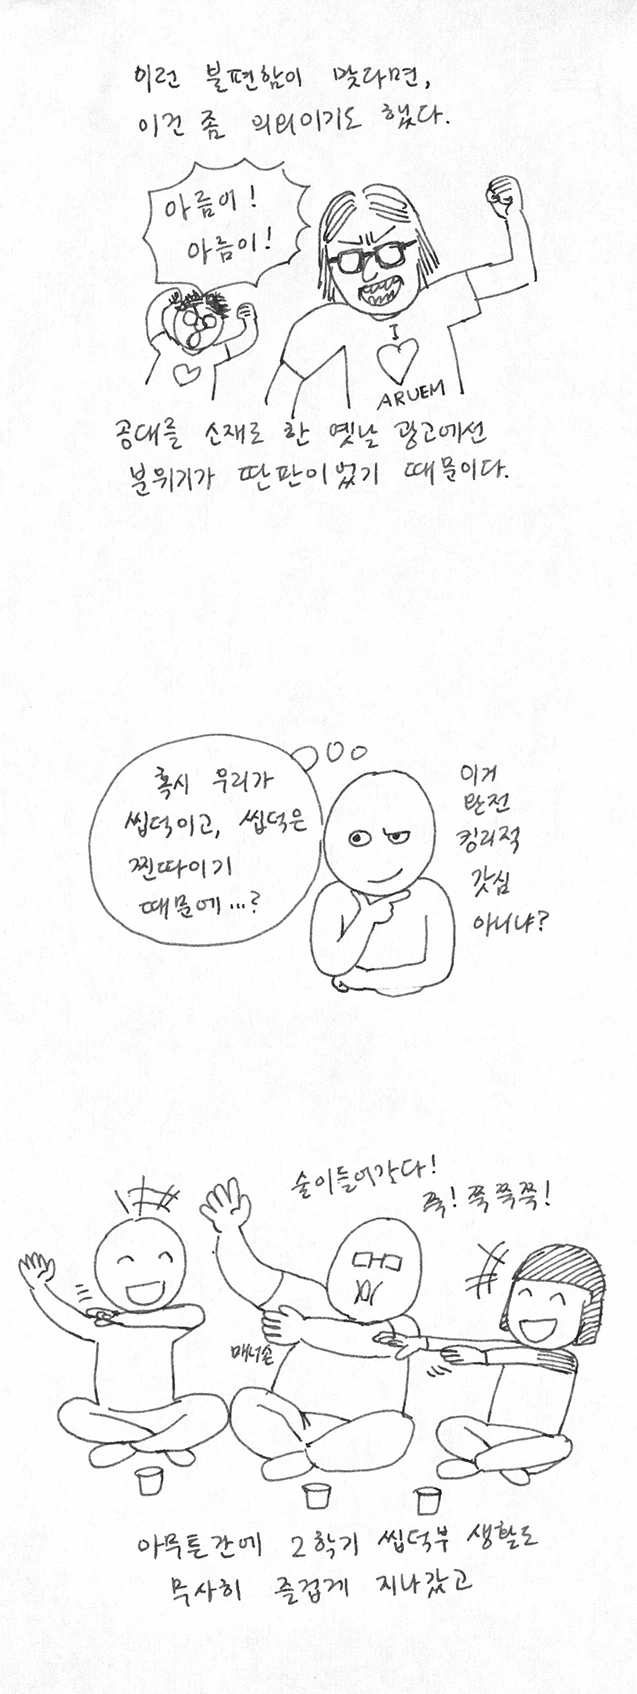 이런 불편함이 맞다면,
이건 좀 의외이기도 했다.
아름이!
아름이!
I
ARUEM
공대를 소재로 한 옛날 광고에선
분위기가 딴판이었기 때문이다.
혹시 우리가
씹덕이고, 씹덕은
찐따이기
때문에...?
이거
완전
킹리적
갓심
아니냐?
술이들어간다!
쭉! 쭉쭉쭉!
매너손
아무튼간에 2학기 씹덕부 생활도
무사히 즐겁게 지나갔고